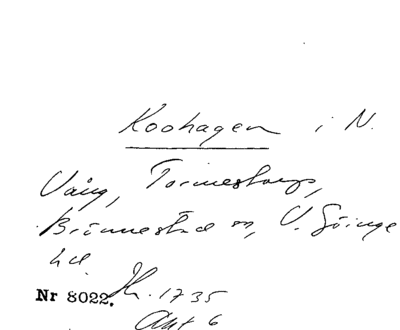 Koohagen i N.
Vång, Tormestorp,
Brönnestad sn, V. Göinge
hd.
Jh. 1735
Nr 8022.
Akt 6